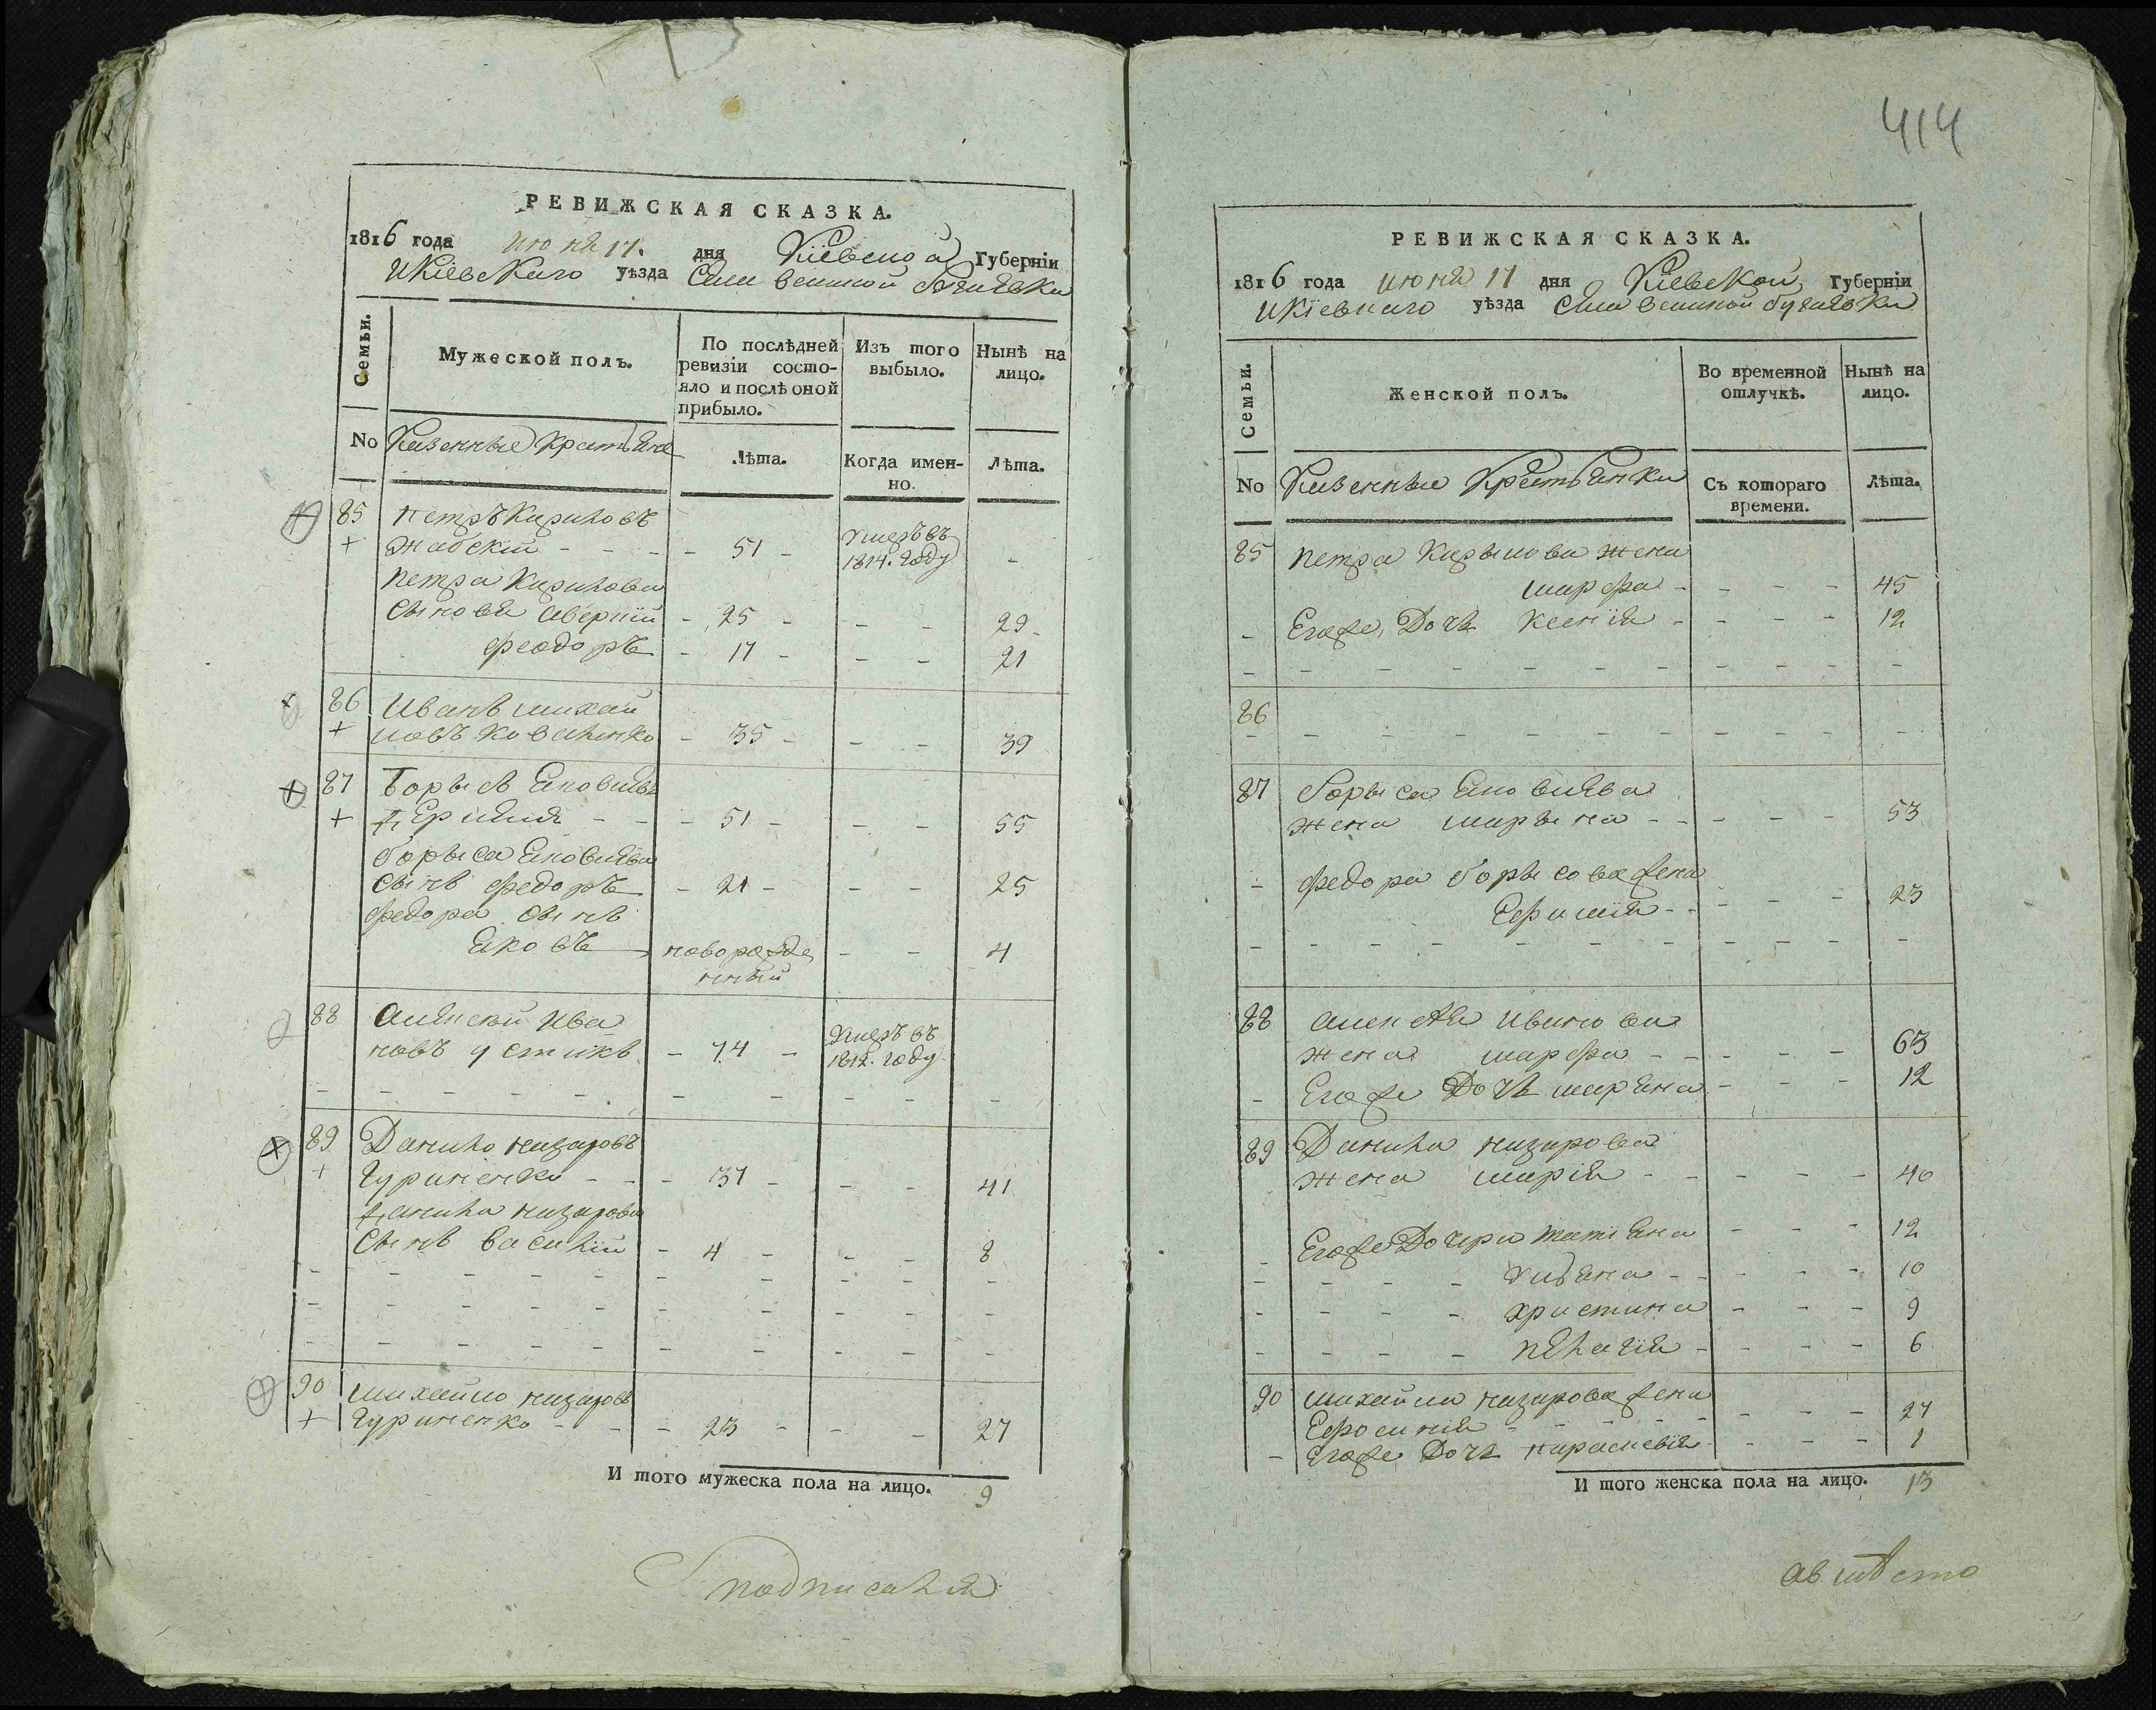 РЕВИЖСКАЯ СКАЗКА.
1816 года июня 17. дня Кіевской Губерніи
и Кіевскаго уѣзда Села великой Бугаевки
Семьи.
Мужеской полъ.
По послѣдней ревизіи состояло и послѣ оной прибыло.
Изъ того выбыло.
Нынѣ на лицо.
No Казенные крестьяне
Лѣта.
Когда именно.
Лѣта.
85 петръ Кириловъ
+ жабскій - - - 51 - умеръ въ 1814. году -
петра Кирилова
сыновя аверкій - 25 - - - 29 -
феодоръ - 17 - - - 21
86 Иванъ михай
+ ловъ Коваленко - 35 - - - 39
87 Борысъ яковлевъ
+ - - - 51 - - - 55
борыса яковлева
сынъ федоръ - 21 - - - 25
федора сынъ
яковъ новорожде нный - - 4
88 алексѣй ива
новъ - 74 - умеръ въ 1812. году
89 Данило назаровъ
+ Гуриненко - - - 37 - - - 41
данила назарова
сынъ василій - 4 - - - 8
90 михайло назаровъ
+ Гуриненко - - - 23 - - - 27
И того мужеска пола на лицо. 9
подписалъ
414
РЕВИЖСКАЯ СКАЗКА.
1816 года июня 17 дня Кіевской Губерніи
и Кіевскаго уѣзда Села великой бугаевки
Семьи.
Женской полъ.
Во временной отлучкѣ.
Нынѣ на лицо.
No Казенные Крестьянки
Съ котораго времени.
Лѣта.
85 петра Кирылова жена
марфа - - - - 45
- Егоже дочь ксенія - - - - 12
86
87 борыса яковлева
жена марына - - - - - 53
- федора борысова жена
Ефимія - - - - - 23
88 алексѣя иванова
жена марфа - - - - - 63
- Егоже дочь маряна - - - 12
89 Данила назарова
жена марія - - - - - 40
- Егоже дочери татіяна - - - 12
улияна - - - - - 10
христина - - - 9
пелагія - - - - 6
90 михайла назарова жена
Ефросинія - - - 27
- Егоже дочь параскевія - - - 1
И того женска пола на лицо. 13
авмѣсто